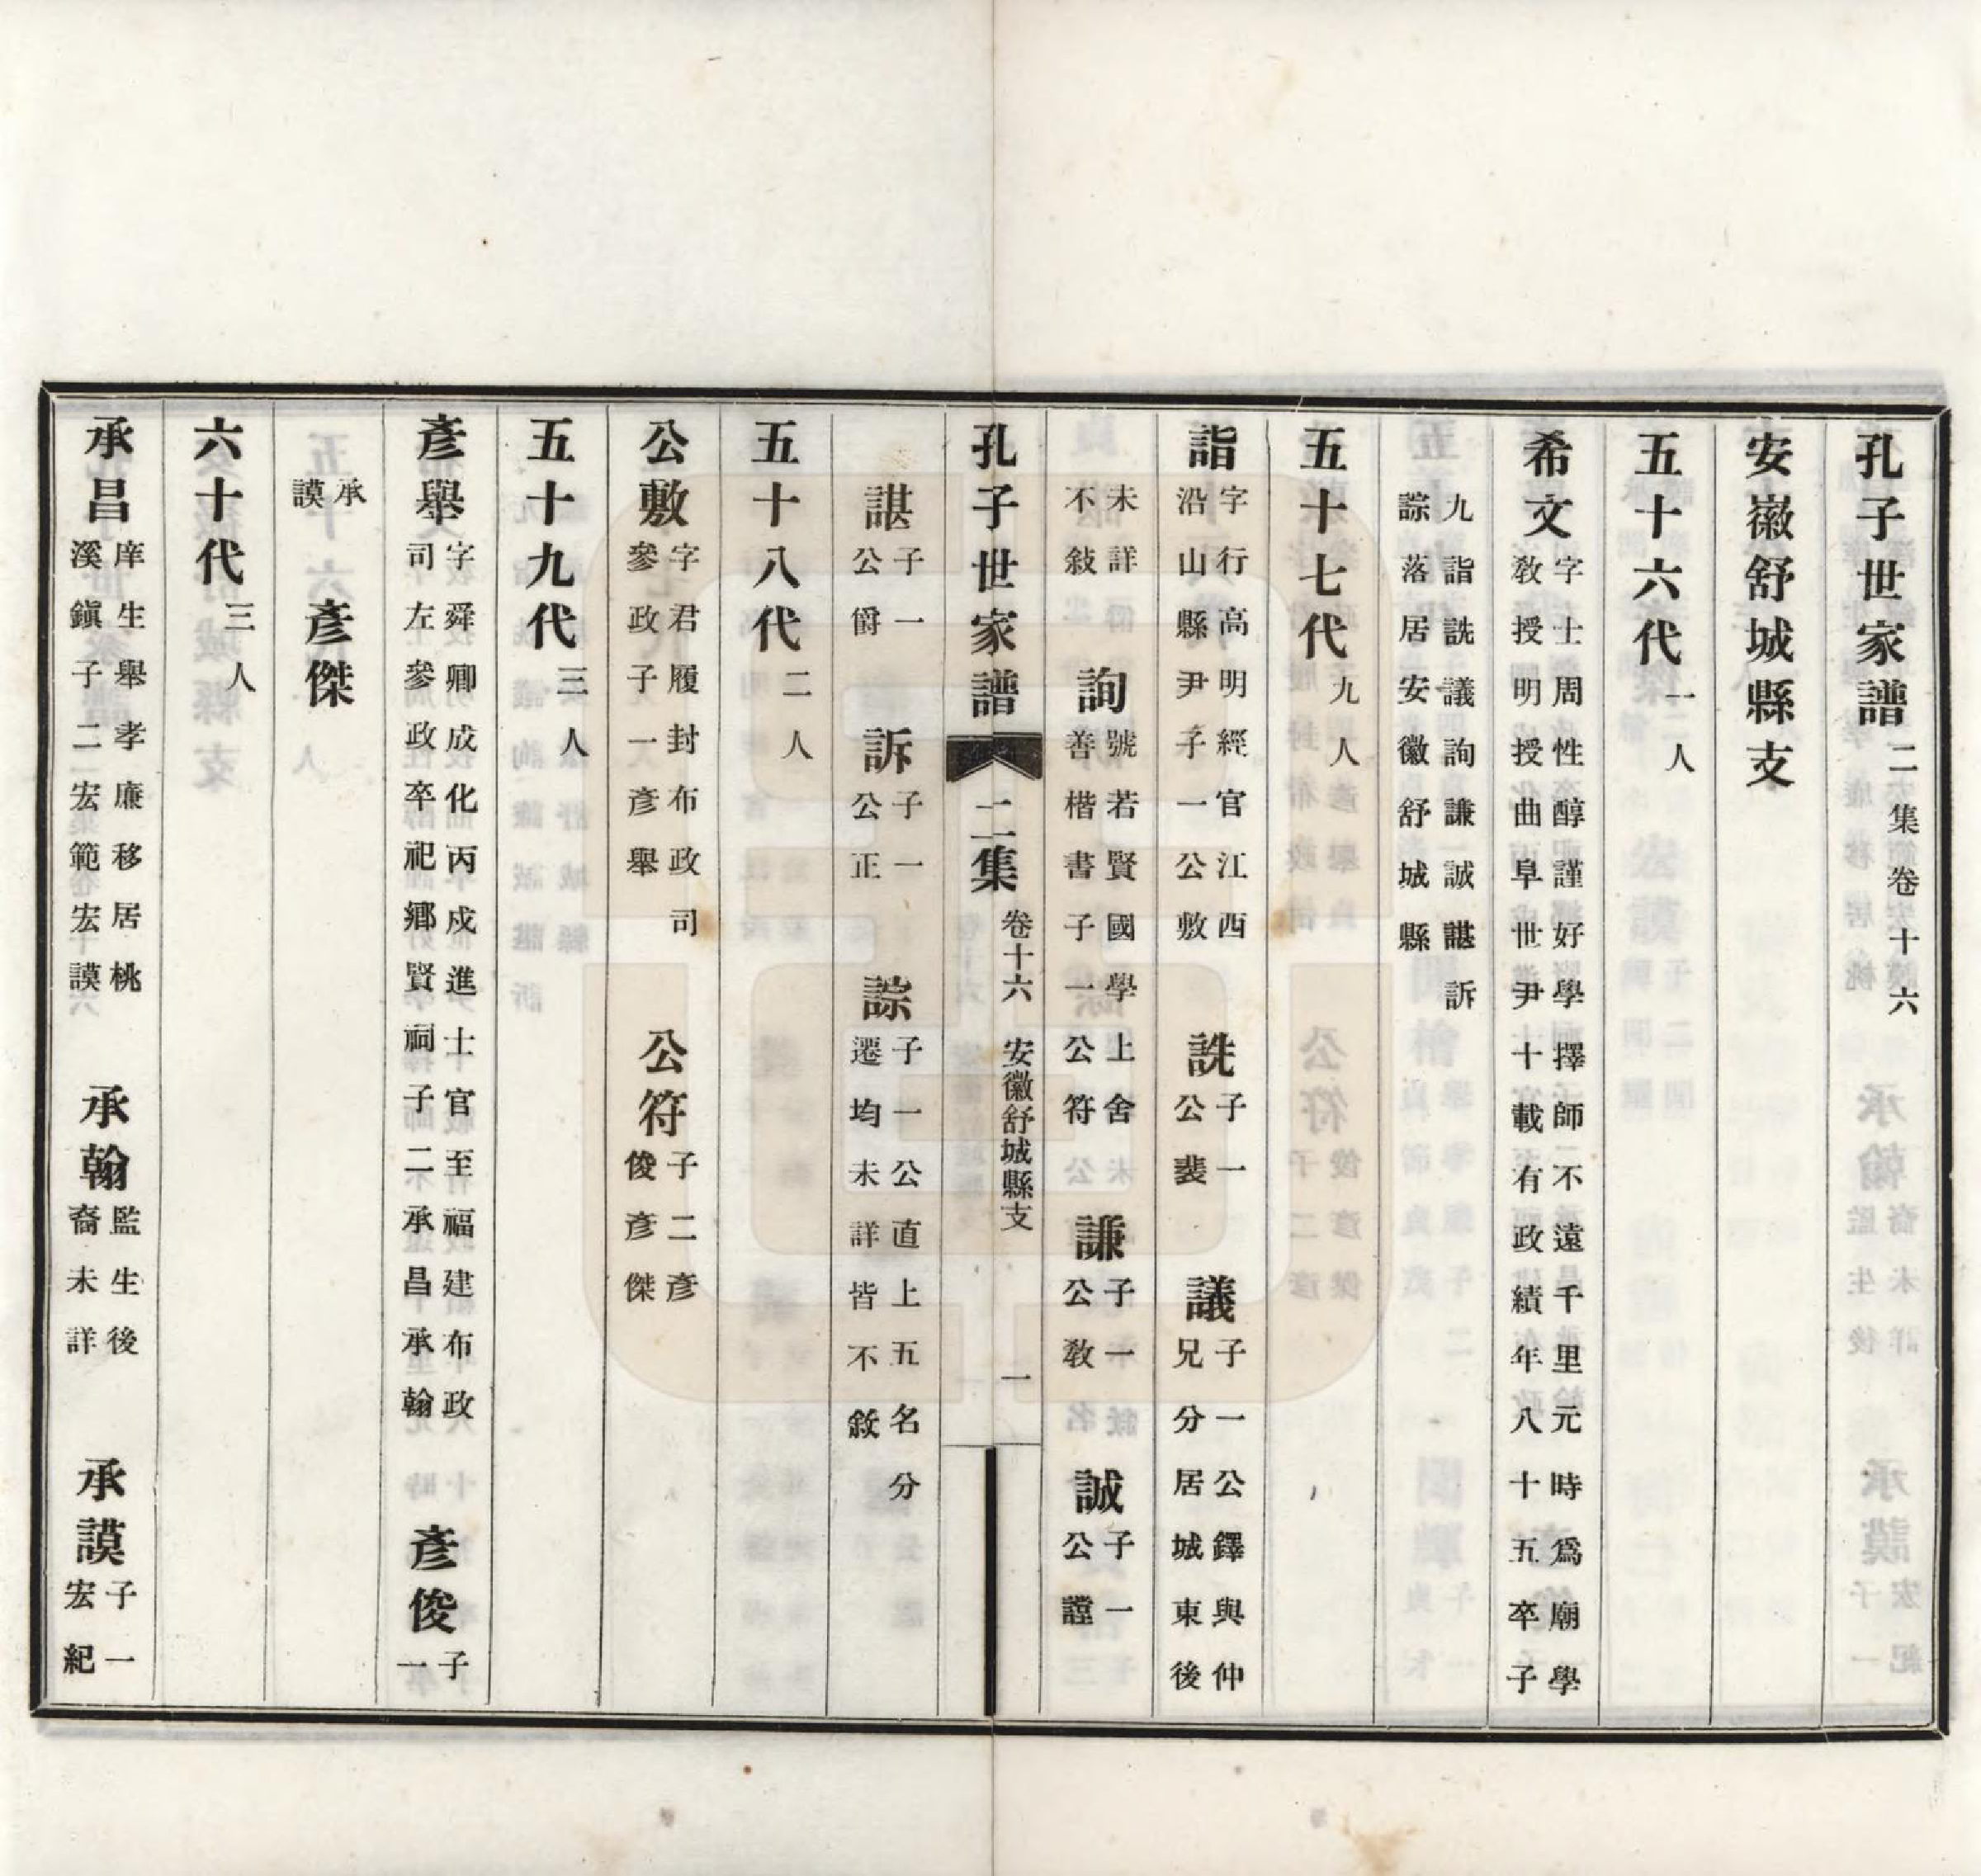 孔子世家譜二集卷十六
安徽舒城縣支
五十六代一人
希文字士周性醇謹好學擇師不遠千里元時爲廟學教授明授曲阜世尹十載有政績年八十五卒子
九詣詵議詢謙誠諶訴誴落居安徽舒城縣
五十七代九人
詣字行高明經官江西沿山縣尹子一公敷　詵子一公裴　議子一公鐸與仲兄分居城東後
未詳不敍　詢號若賢國學上舍善楷書子一公符　謙子一公教　誠子一公讜
孔子世家譜　二集　卷十六　安徽舒城縣支　一
諶子一公爵　訴子一公正　誴子一公直上五名分遷均未詳皆不敍
五十八代二人
公敷字君履封布政司參政子一彥舉　公符子二彥俊彥傑
五十九代三人
彥舉字舜卿成化丙戌進士官至福建布政司左參政卒祀鄉賢祠子二承昌承翰　彥俊子一
承謨　彥傑
六十代三人
承昌庠生舉孝廉移居桃溪鎭子二宏範宏謨　承翰監生後裔未詳　承謨子一宏紀